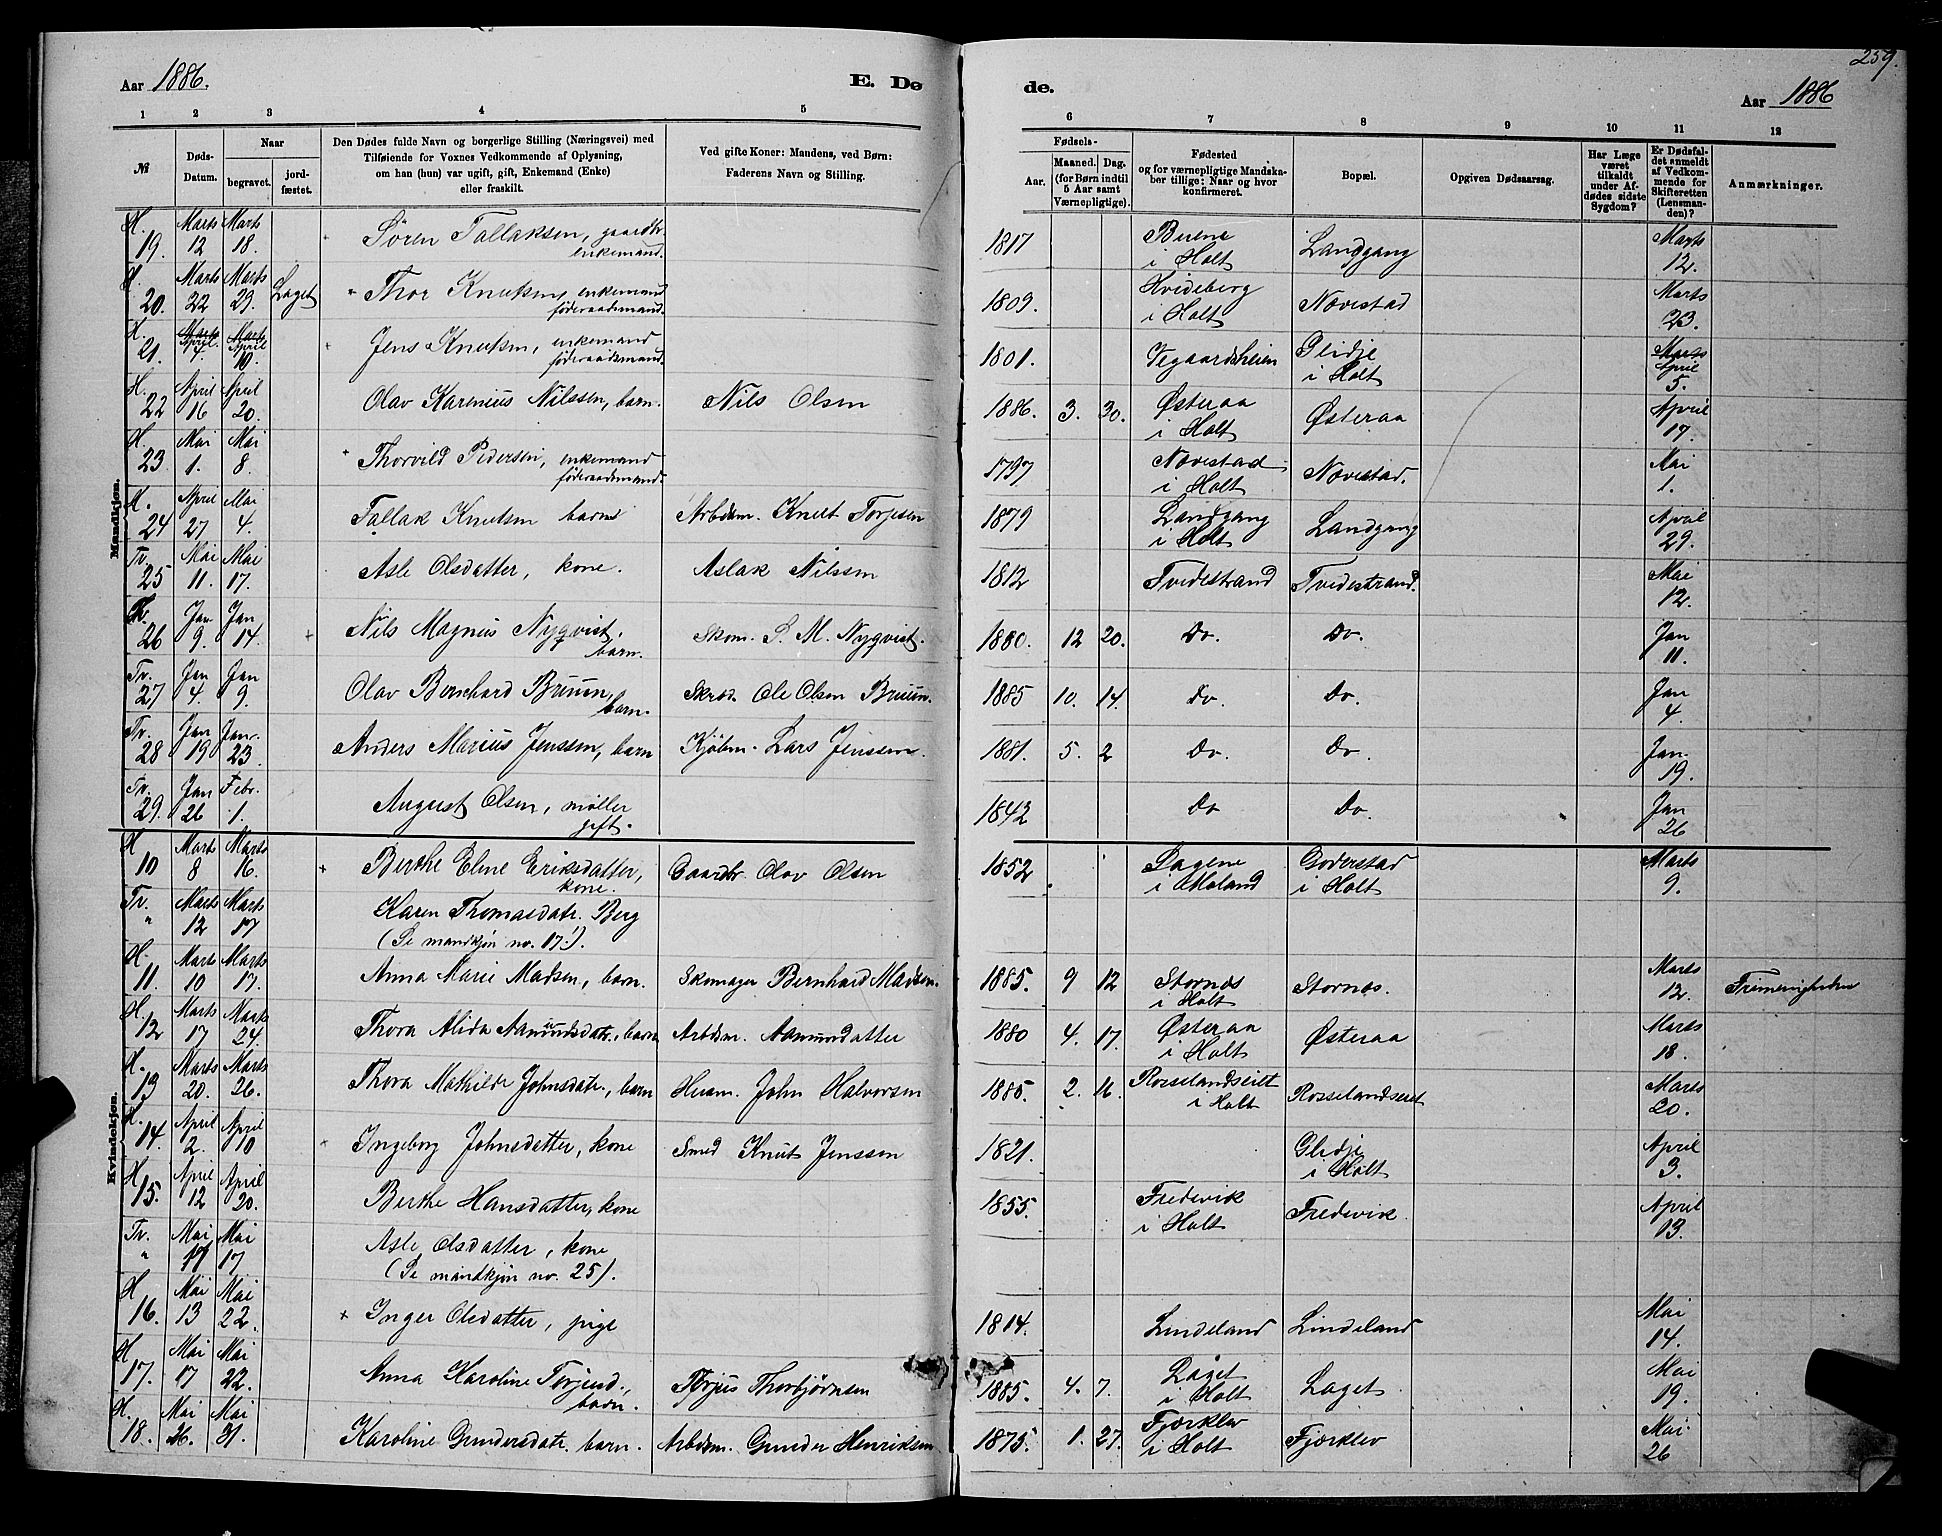 Aar 1886.
E. Dø
1 2 3 4 5
№
Døds-
Datum.
Naar
begravet.
jord-
fæstet.
Den Dødes fulde Navn og borgerlige Stilling (Næringsvei) med
Tilføiende for Voxnes Vedkommende af Oplysning,
om han (hun) var ugift, gift, Enkemand (Enke)
eller fraskilt.
Ved gifte Koner: Mandens, ved Børn:
Faderens Navn og Stilling.
Mandkjøn.
H. 19. Marts 12 Marts 18. Søren Tallaksen, gaardbr. enkemand.
H. 20. Marts 22 Marts 29. Laget Thor Knutsen, enkemand føderaadsmand.
H. 21. April 4. April 10. Jens Knutsen, enkemand føderaadsmand.
H. 22 April 16 April 20. Olav Karenius Nilssen, barn. Nils Olsen
H. 23 Mai 1. Mai 8. Thorvild Pedersen, enkemand føderaadsmand.
H. 24 April 27 Mai 4. Tallak Knutsen barn Arbdsm. Knut Torjesen
Tv. 25 Mai 11. Mai 17. Asle Olsdatter, kone. Aslak Nilssen
Tv. 26 Jan 9. Jan 14. Nils Magnus Nyqvist. barn. Skom. S. M. Nyqvist.
Tv. 27 Jan 4. Jan 9. Olav Bernhard Bruun, barn. Skræd. Ole Olsen Bruun.
Tv. 28 Jan 19 Jan. 23. Anders Marius Jenssen, barn Kjøbm. Lars Jenssen.
Tv. 29. Jan 26 Febr. 1. August Olsen, møller gift.
Kvindekjøn.
H 10 Marts 8 Marts 16. Berthe Eline Eriksdatter, kone. Gaardbr. Olav Olsen
Tv. " Marts 12 Marts 17 Karen Thomasdatr. Berg
(Se mandkjøn no. 17!).
H. 11. Marts 10 Marts 17. Anna Marie Madsen, barn. Skomager Bernhard Madsen.
H. 12 Marts 17 Marts 24. Thora Alida Aamundsdatr., barn Arbdsm. Aamundatter
H. 13 Marts 20. Marts 26. Thora Mathilde Johnsdatr., barn Husm. John Halvorsen
H. 14. April 2. April 10 Ingeborg Johnsdatter, kone Smed Knut Jenssen
H 15. April 12 April 20. Berthe Hansdatter, kone
Tv. " Mai 11 Mai 17 Asle Olsdatter, kone
(Se mandkjøn no. 25).
H 16. Mai 13 Mai 22. Inger Olsdatter, pige
H 17. Mai 17 Mai 22. Anna Karoline Torjusd., barn. Torjus Thorbjørnsen
H. 18. Mai 26. Mai 31. Karoline Gundersdatr. barn. Arbdsm. Gunder Henriksen
259.
de.
Aar 1886
6 7 8 9 10 11 12
Fødsels-
Aar.
Maaned. Dag.
(for Børn indtil
5 Aar samt
Værnepligtige).
Fødested
og for værnepligtige Mandska-
ber tillige: Naar og hvor
konfirmeret.
Bopæl.
Opgiven Dødsaarsag.
Har Læge
været
tilkaldt
under Af-
dødes sidste
Sygdom?
Er Dødsfal-
det anmeldt
af Vedkom-
mende for
Skifteretten
(Lensman-
den)?
Anmærkninger.
1817 i Holt Landgang Marts 12.
1809. Hvideberg i Holt Nævestad Marts 23.
1801. Vegaardsheien Glidje i Holt Marts April 5.
1886. 3. 30. Østeraa i Holt Østeraa April 17.
1797 Nævestad i Holt Nævestad. Mai 1.
1879 Landgang i Holt Landgang April 29.
1812 Tvedestrand Tvedestrand. Mai 12.
1880. 12 20. Do. Do. Jan 11.
1885 10. 14. Do. Do. Jan 4.
1881. 5. 2 Do. Do. Jan. 19.
1842 Do Do. Jan 26
1852 i Moland Goderstad i Holt Marts 9.
1885. 9 12 Stornæs i Holt Stornæs. Marts 12.
1880 4. 17. Østeraa i Holt Østeraa Marts 18.
1885. 2. 16. Rosselandseiet i Holt Rosselandseiet Marts 20.
1821. Glidje i Holt April 3.
1855. Fredevik i Holt Fredevik April 13.
1814. Lindeland Lindeland Mai 14.
1885. 4. 7. Laget i Holt Laget Mai 19.
1875. 1. 27. Fjærklev i Holt Fjærklev Mai 26